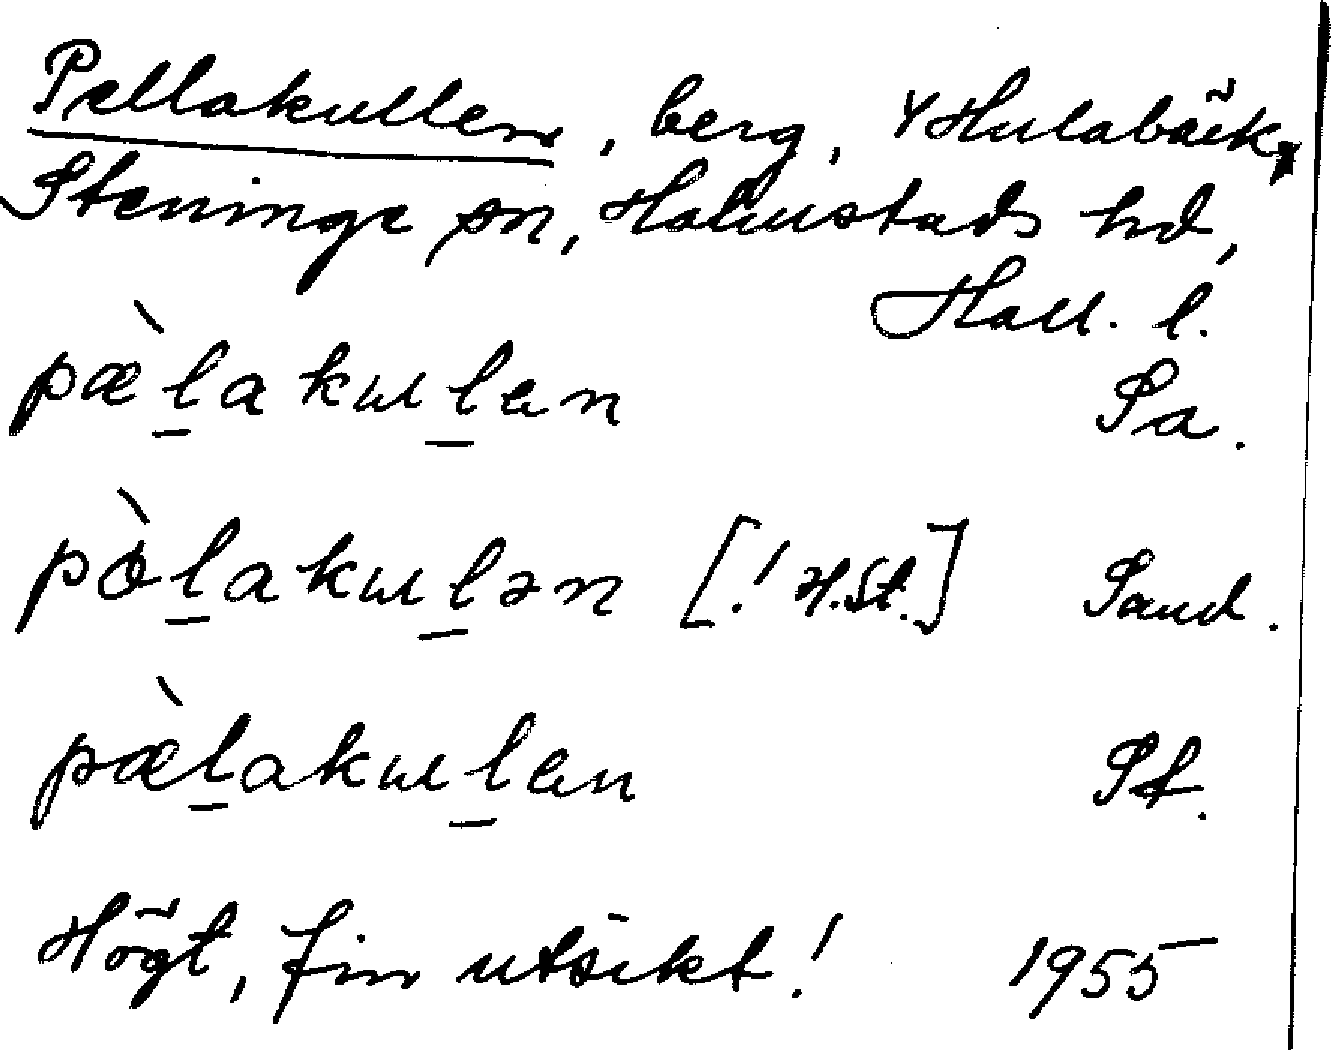 Pellakullen, berg, Y Hulabäck,
Steninge sn, Halmstads hd,
Hall. l.
pæ̀l̲akɯl̲ɐn Pa.
pɔ̀l̲akɯl̲ən [! H.St.] Sand.
pæ̀l̲akɯl̲ɐn Sf.
Högt, fin utsikt! 1955